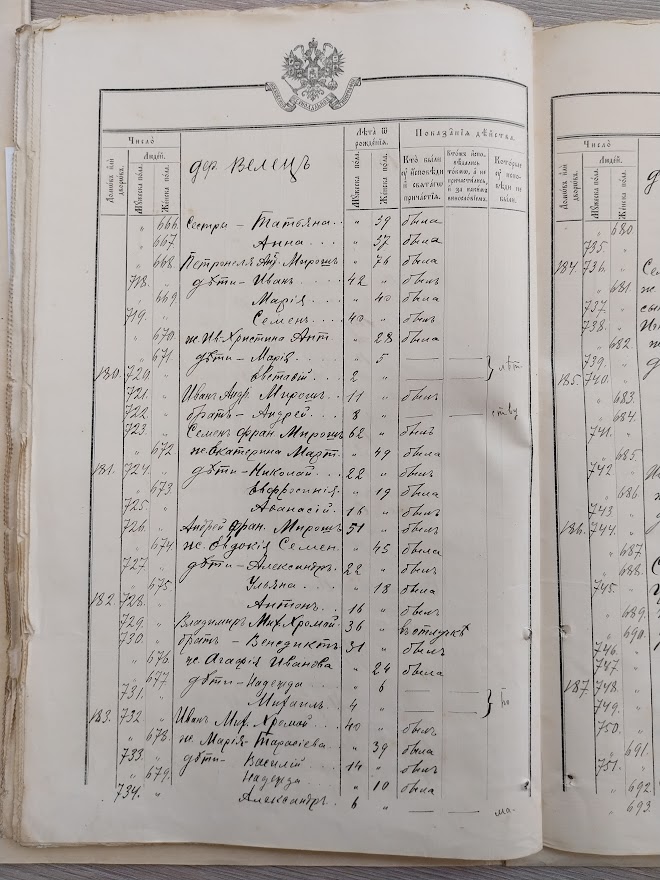 Число
Людей.
Домовъ или дворовъ.
Мужеска пола.
Женска пола.
дер. Велецъ
Лѣта ѿ рожденїѧ.
Мужеска пола.
Женска пола.
Показанїѧ дѣйства.
Кто были оу исповѣди и свѧтагѡ причастїѧ.
Которые оу исповѣди не были.
" 666. Сестра – Татьяна . . " 39 была
" 667. Анна . . . " 37 была
" 668 Петронеля Анд. Мирошъ " 76 была
718. " дѣти – Иванъ . . . 42 " былъ
" 669 Марія . . . . " 40 была
719. " Семенъ . . . 40 " былъ
" 670. ж. Ив. Христина Ант. " 28 была
" 671. дѣти – Марія . . . " 5 — —
180. 720. " Евстафій . . . 2 " — — лѣт
721. " Иванъ Андр. Мирошъ . 11 " былъ
722. " братъ – Андрей . . . . 8 " — — ству
723. " Семенъ Фран. Мирошъ 62 " былъ
" 672 ж. Екатерина Март. " 49 была
181. 724. " дѣти – Николай . . 22 " былъ
" 673. Евфросинія . " 19 была
725. " Аѳанасій . 16 " былъ
726. " Андрей Фран. Мирошъ 51 " былъ
" 674. ж. Евдокія Семен. " 45 была
727. " дѣти – Александръ . 22 " былъ
" 675. Ульяна . . . " 18 была
182. 728. " Антонъ . . 16 " былъ
729. " Владимиръ Мих. Хромой. 36 "
730. " братъ – Венедиктъ 31 " былъ
" 676. ж. Агафія Иванова " 24 была
" 677 дѣти – Надежда . . . " 6 — —
731. " Михаилъ . . 4 " — — по
183. 732. " Иванъ Мих. Хромой . . 40 " былъ
" 678. ж. Марія Тарасіева " 39 была
733. " дѣти – Василій . . 14 " былъ
" 679. Надежда . . . " 10 была
734. " Александръ . 6 " — — ма.
Число
Людей.
Домовъ или дворовъ.
Мужеска пола.
Женска пола.
д
" 680
735. "
184. 736. " Се
" 681. ж
737. " сы
738. "
" 682.
739. "
185. 740. "
" 683.
" 684.
741. "
" 685.
742 "
" 686
743 "
186. 744. "
" 687.
" 688.
745. "
" 689.
" 690.
746. "
747 "
187 748. "
749. "
750. "
" 691.
751. "
" 692.
" 693.